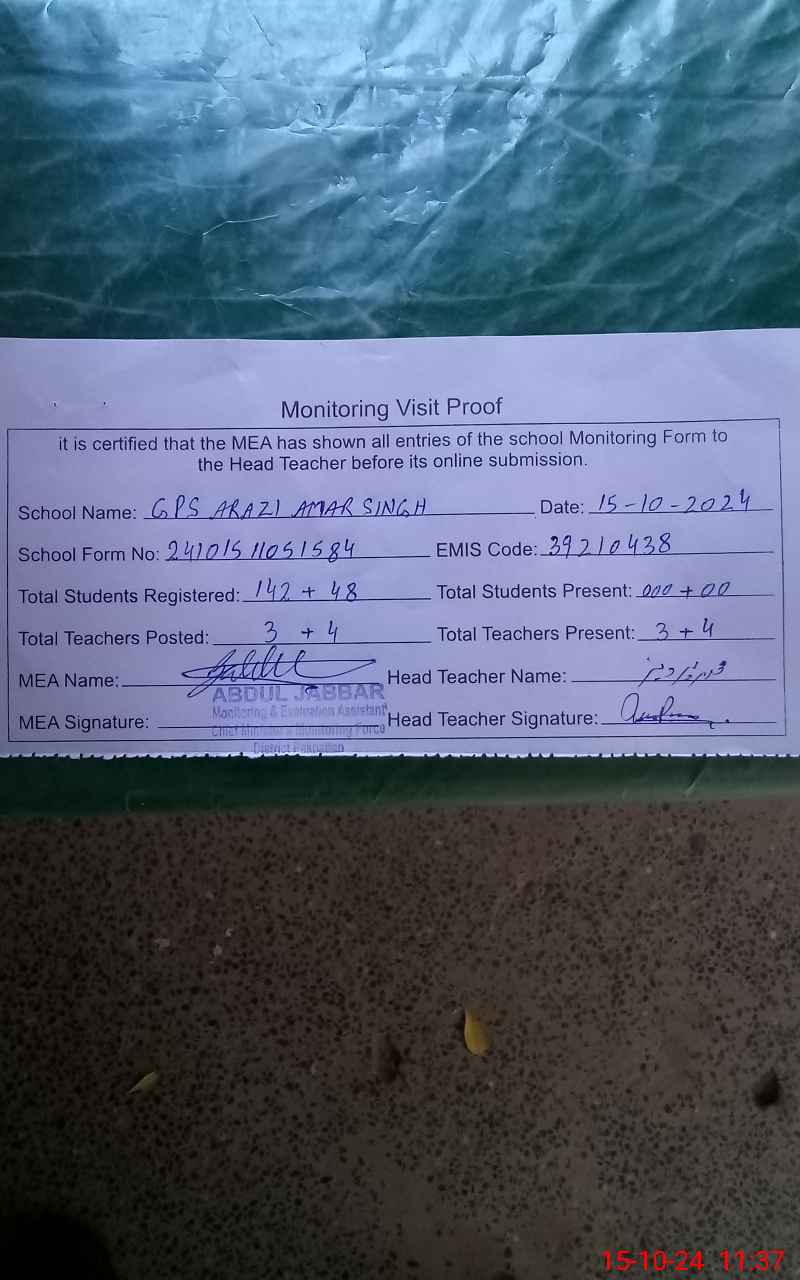 Monitoring Visit Proof
it is certified that the MEA has shown all entries of the school Monitoring Form to
the Head Teacher before its online submission.
School Name: GPS ARAZI AMAR SINGH Date: 15-10-2024
School Form No: 241015 11051584 EMIS Code: 39210438
Total Students Registered: 142 + 48 Total Students Present: 000 + 00
Total Teachers Posted: 3 + 4 Total Teachers Present: 3 + 4
MEA Name: Head Teacher Name:
ABDUL JABBAR
Monitoring & Evaluation Assistant
MEA Signature: Head Teacher Signature:
Chief Minister's Monitoring Force
District Pakpattan
15-10-24 11:37